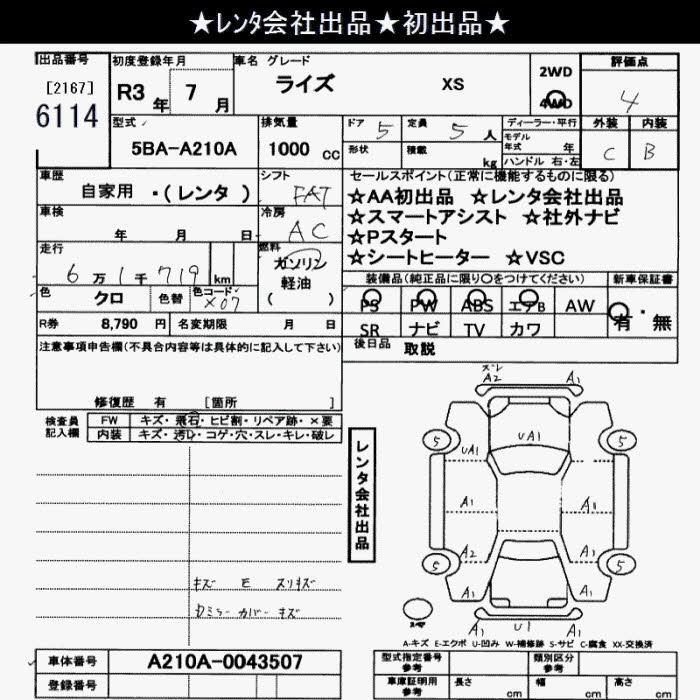 ★レンタ会社出品★初出品★
出品番号 [2167] 6114
初度登録年月 R3 年 7 月
車名 グレード ライズ XS
2WD
4WD
評価点 4
外装 内装
C B
型式 5BA-A210A
排気量 1000 cc
ドア 5 定員 5 人
形状 積載 kg
ディーラー・平行
モデル年式 年
ハンドル 右・左
車歴 自家用 ・(レンタ )
シフト FAT
車検 年 月 日
冷房 AC
走行 6 万 1 千 719 km
燃料 ガソリン 軽油 ( )
色 クロ 色替 色コード X07
R券 8,790 円 名変期限 月 日
セールスポイント(正常に機能するものに限る)
☆AA初出品 ☆レンタ会社出品
☆スマートアシスト ☆社外ナビ
☆Pスタート
☆シートヒーター ☆VSC
装備品(純正品に限り○をつけてください) 新車保証書
PS PW ABS エアB AW 有・無
SR ナビ TV カワ
後日品 取説
注意事項申告欄(不具合内容等は具体的に記入して下さい)
修復歴 有 [箇所 ]
検査員記入欄
FW キズ・飛石・ヒビ割・リペア跡・×要
内装 キズ・汚レ・コゲ・穴・スレ・キレ・破レ
キズ E スリキズ
カバー キズ
レンタ会社出品
A2 A1
UA1
5 5
A1 A1
A2 A1
5 5
A1 A1
A1 U1 A1
A-キズ E-エクボ U-凹み W-補修跡 S-サビ C-腐食 XX-交換済
車体番号 A210A-0043507
登録番号
型式指定番号 参考 類別区分 参考
車庫証明用 参考 長さ cm 幅 cm 高さ cm